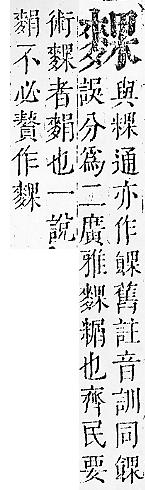 䴹與粿通亦作餜舊註音訓同餜
誤分爲二廣雅䴹也齊民要
術䴹者也一說
不必贅作䴹